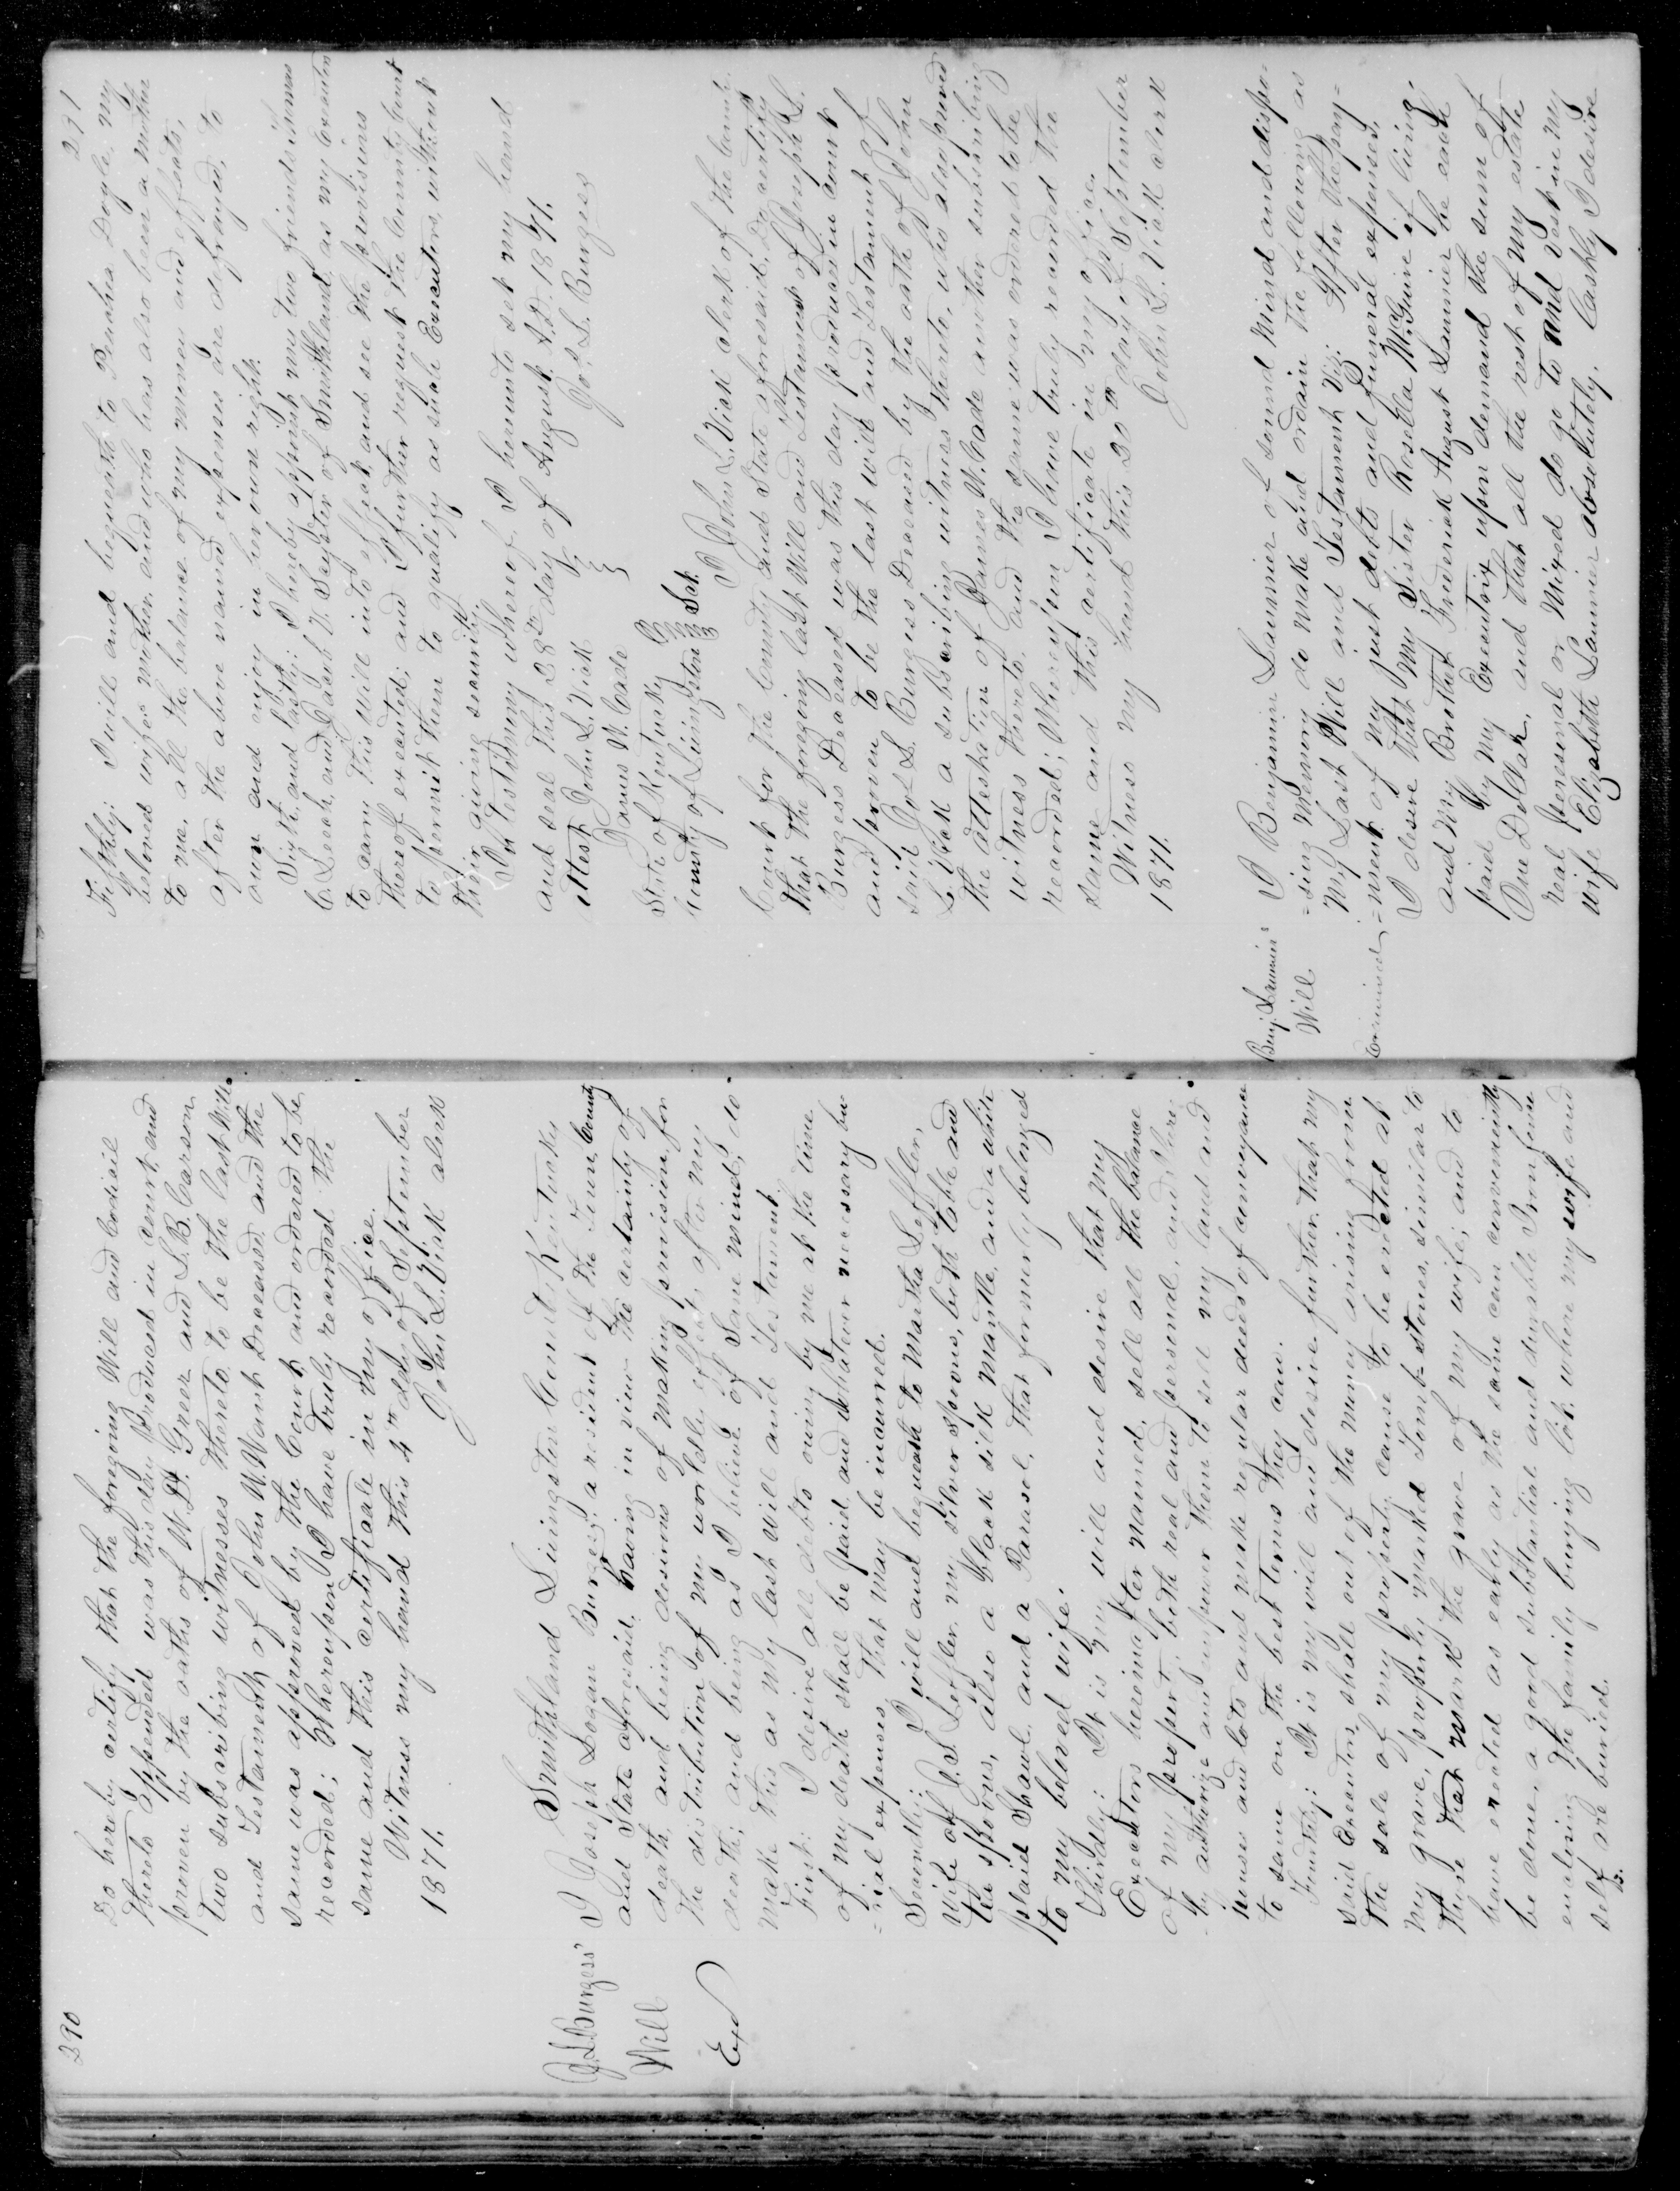 290
Do hereby certify that the foregoing Will and Codicil
thereto appended was this day produced in court and
proven by the oaths of W. D. Greer and S. B. Carson
two subscribing witnesses thereto to be the last Will
and Testament of John W. Want Deceased and the
same was approved by the Court and ordered to be
recorded; Whereupon I have truly recorded the
same and this certificate in my office.
Witness my hand this 4th day of September
1871. John L. Vick clerk
J. L. Burgess'
Will
Exd
Smithland Livingston County Kentucky
I Joseph Logan Burgess: a resident of the Town, County
and State aforesaid, having in view the certainty of
death, and being desirous of making provision for
the distribution of my worldly effects, after my
death; and being as I believe of sane mind, do
make this as my last Will and Testament.
First: I desire all debts owing by me at the time
of my death shall be paid and whatever necessary bu-
-rial expenses that may be incurred.
Secondly: I will and bequeath to Martha Leffler,
wife of J. S. Leffler my silver spoons, both table and
tea spoons, also a black silk mantle, and a white
plaid Shawl and a Parasol, that formerly belonged
to my beloved wife.
Thirdly: It is my will and desire that my
Executors hereinafter named, sell all the balance
of my property, both real and personal, and I here-
-by authorize and empower them to sell my land and
houses and lots and make regular deeds of conveyance
to same on the best terms they can.
Fourthly: It is my will and desire further, that my
said Executors, shall out of the money arising from
the sale of my property, cause to be erected at
my grave, properly marked Tomb-stones, similar to
those that mark the grave of my wife; and to
have erected as early as the same can conveniently
be done, a good substantial and durable Iron fence
enclosing the family burying lot, where my wife and
self be buried.
291
Fifthly: I will and bequeath to Penachea Doyle, my
beloved wifes mother, and who has also been a mother
to me, all the balance of my money and effects,
after the above named expenses are defrayed, to
own and enjoy in her own right.
Sixth and lastly: I hereby appoint my two friends Thomas
C. Leech and Jacob V. Seyster of Smithland, as my Executors
to carry this Will into effect and see the provisions
thereof executed; and I further request the County Court
to permit them to qualify as such Executors, without
their giving security
In testimony whereof I hereunto set my hand
and seal this 28th day of August A.D. 1871.
Attest John L. Vick
James W. Cade
Jos. L. Burgess
State of Kentucky
County of Livingston Sct.
I John L. Vick clerk of the County
Court for the County and State aforesaid, Do certify
that the foregoing last Will and Testament of Joseph L.
Burgess Deceased was this day produced in court
and proven to be the last will and Testament of
said Jos L. Burgess Deceased by the oath of John
L. Vick a subscribing witness thereto, who also proved
the attestation of James W. Cade another subscribing
witness thereto, and the same was ordered to be
recorded; Whereupon I have truly recorded the
same and this certificate in my office.
Witness my hand this 20th day of September
1871. John L. Vick clerk
Benj. Launier's
Will
Examined
I Benjamin Launier of sound Mind and dispo-
-sing Memory do make and ordain the following as
My Last Will and Testament Viz: After the pay-
-ment of my just debts and funeral expenses,
I desire that my Sister Rosella McGuire if living
and My Brother Frederick August Launier be each
paid by my Executrix upon demand the sum of
One Dollar, and that all the rest of my estate
real personal or Mixed do go to and vest in my
wife Elizabeth Launier absolutely. Lastly I desire